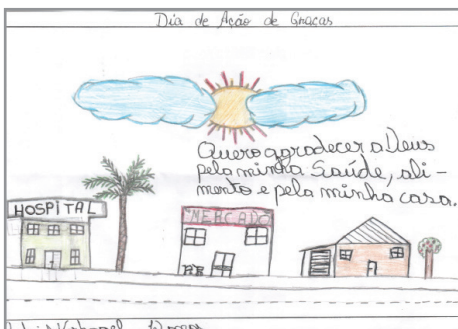 Dia de Ação de Graças
Quero agradecer a Deus
pela minha Saúde, ali-
mento e pela minha casa.
HOSPITAL
MERCADO